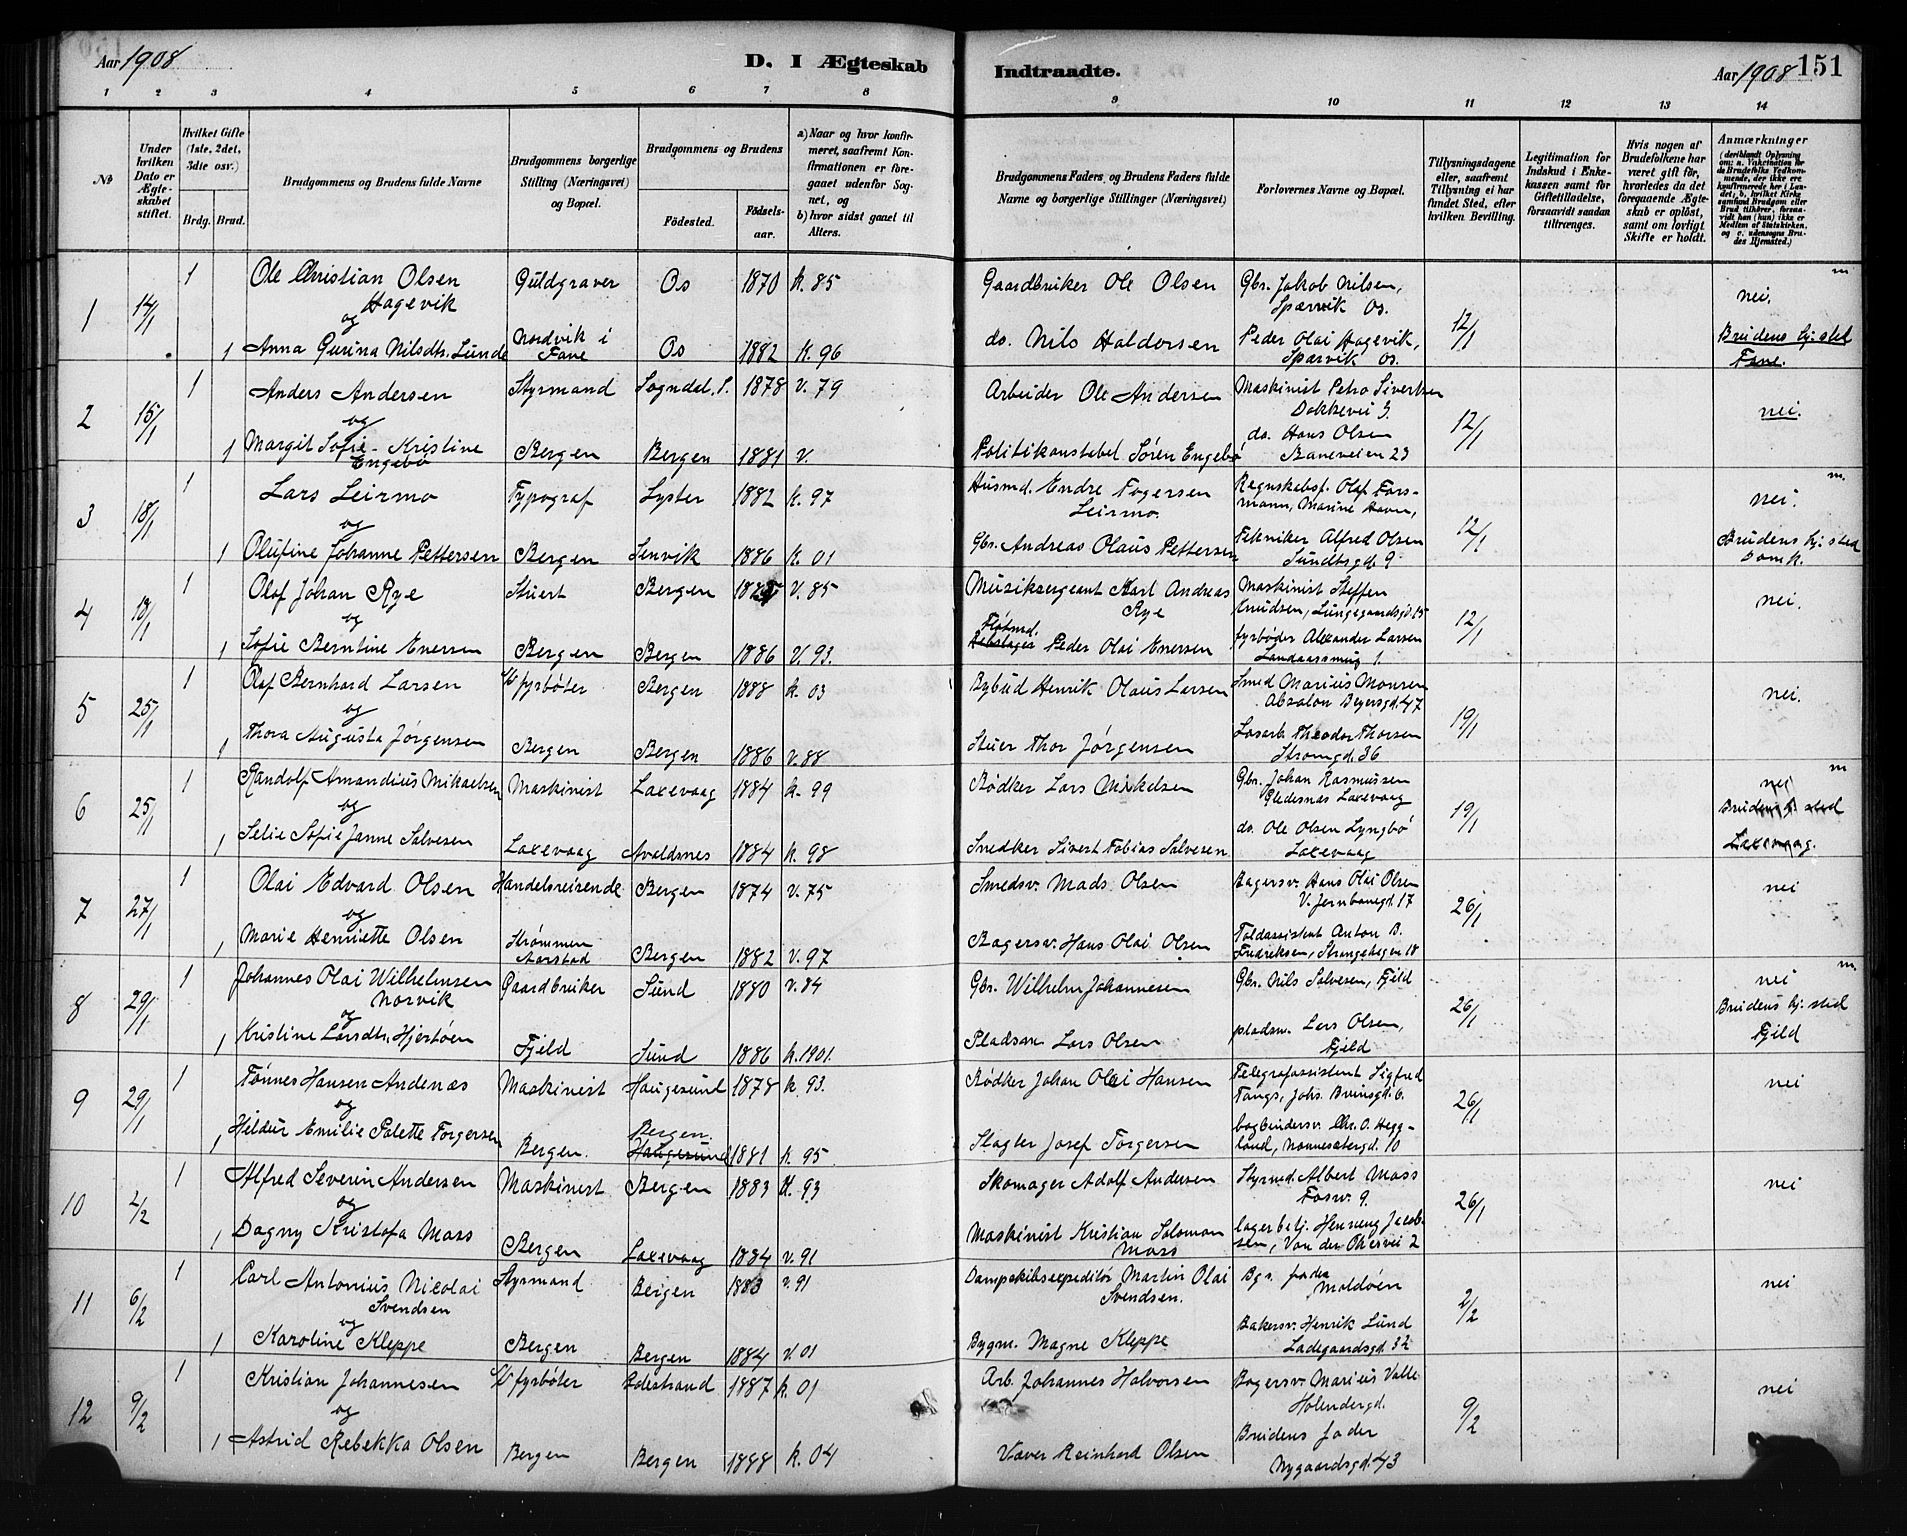 Aar 1908 D. I Ægteskab Indtraadte. Aar 1908 151
1 2 3 4 5 6 7 8 9 10 11 12 13 14
№
Under hvilken Dato er Ægteskabet stiftet.
Hvilket Gifte (1ste, 2det, 3die osv.)
Brdg. Brud.
Brudgommens og Brudens fulde Navne
Brudgommens borgerlige Stilling (Næringsvei) og Bopæl.
Brudgommens og Brudens
Fødested. Fødselsaar.
a) Naar og hvor konfirmeret, saafremt Konfirmationen er foregaaet udenfor Sognet, og
b) hvor sidst gaaet til Alters.
Brudgommens Faders og Brudens Faders fulde Navne og borgerlige Stillinger (Næringsvei)
Forlovernes Navne og Bopæl.
Tillysningsdagene eller, saafremt Tillysning ei har fundet Sted, efter hvilken Bevilling.
Legitimation for Indskud i Enkekassen samt for Giftetilladelse, forsaavidt saadan tiltrænges.
Hvis nogen af Brudefolkene har været gift før, hvorledes da det foregaaende Ægteskab er opløst, samt om lovligt Skifte er holdt.
Anmærkninger
(deriblandt Oplysning om: a. Vakcination for de Brudefolks Vedkommende, der ikke ere konfirmerede her i Landet; b. hvilket Kirkesamfund Brudgom eller Brud tilhører, forsaavidt han (hun) ikke er Medlem af Statskirken, og c. udensogns Brudes Hjemsted.)
1 14/1 1 Ole Christian Olsen Hagevik Guldgraver Os 1870 k. 85 Gaardbruker Ole Olsen Gbr. Jakob Nilsen, Spærvik Os. 12/1 nei. m
og
1 Anna Gurina Nilsdtr. Lunde Nordvik i Fane Os 1882 k. 96 do. Nils Haldorsen Peder Olai Hagevik, Spærvik Os. Brudens hj: sted Fane.
2 15/1 1 Anders Andersen Styrmand Sogndal. S. 1878 v. 79 Arbeider Ole Andersen Maskinist Petro Sivertsen Dokkevei 3. 12/1 nei.
og
1 Margit Sofie Kristine Engebø Bergen Bergen 1881 v. Politikonstabel Søren Engebø do. Hans Olsen Baneveien 23
3 18/1 1 Lars Leirmo Typograf Lyster 1882 k. 97 Husmd. Endre Togersen Leirmo. Regnskabsf. Olaf Forsmann, Marine Havn, 12/1 nei. m.
og
1 Olufine Johanne Pettersen Bergen Senvik 1886 k. 01 Gbr. Andreas Olaus Pettersen Tekniker Alfred Olsen Sundtsgd. 9 Brudens hj: sted Domk.
4 18/1 1 Olaf Johan Rye Stuert Bergen v. 85 Musiksergeant Karl Andreas Rye Maskinist Steffen Knudsen, Lungegaardsgd. 15 12/1 nei.
og
1 Sofie Berntine Enersen Bergen Bergen 1886 v. 93. Peder Olai Enersen fyrbøder Alexander Larsen 1.
5 25/1 1 Olaf Bernhard Larsen fyrbøter Bergen 1888 k. 03 Bybud Henrik Olaus Larsen Smed Marius Monsen Absalon Beyersgd. 47 19/1 nei.
og
1 Thora Augusta Jørgensen Bergen Bergen 1886 v. 88 Stuer Thor Jørgensen Losarb. Theodor Thorsen Stromgd. 36
6 25/1 1 Randolf Amandius Mikaelsen Maskinist Laxevaag 1884 k. 99 Bødker Lars Mikelsen Gbr. Johan Rasmussen Gledesnæs Laxevaag 19/1 nei m
og
1 Selie Sofie Janne Salvesen Laxevaag Avaldsnes 1884 k. 98 Snedker Sivert Tobias Salvesen do. Ole Olsen Lyngbø Laxevaag Brudens hj: sted Laxevaag.
7 27/1 1 Olai Edvard Olsen Handelsreisende Bergen 1874 v. 75 Smedsv. Mads Olsen Bagersv. Hans Olai Olsen V. Jernbanegd. 17 26/1 nei
og
1 Marie Henriette Olsen Strømmen Aarstad Bergen 1882 v. 97 Bagersv. Hans Olai Olsen Toldassistent Anton B. Fredriksen, Strangehagen 18
8 29/1 1 Johannes Olai Wilhelmsen Norvik Gaardbruiker Sund 1880 v. 84 Gbr. Wilhelm Johannesen Gbr. Nils Salvesen, Fjeld 26/1 nei m.
og
1 Kristine Larsdtr. Hjertøen Fjeld Sund 1886 k. 1901. Pladsm. Lars Olsen pladsm. Lars Olsen, Fjeld Brudens hj: sted Fjeld
9 29/1 1 Tønnes Hansen Andenæs Maskinist Haugesund 1878 k. 93. Bødker Johan Olai Hansen Telegrafassistent Sigfred Fangs, Johs. Bruinsgd. 6. 26/1 nei
og
1 Hildur Emilie Palette Torgersen Bergen. Bergen. Haugesund 1881 k. 95 Slagter Josef Torgersen bogbindersv. Chr. O. Heggland, Nonnesætergd. 10
10 2/2 1 Alfred Severin Andersen Maskinist Bergen 1883 k. 93 Skomager Adolf Andersen Styrmd. Albert Mass Fosw. 9. 26/1 nei
og
1 Dagny Kristofa Mass Bergen Laxevaag 1884 v. 91 Maskinist Kristian Salomon Mass lagerbetj. Henning Jacobsen, Van der 2
11 6/2 1 Carl Antonius Nicolai Svendsen Styrmand Bergen 1883 v. 91 Dampskibsexpeditør Martin Olai Svendsen. Bgs. fader Moldøen 2/2 nei
og
1 Karoline Kleppe Bergen Bergen 1884 v. 01 Bygm. Magne Kleppe Bakersv. Henrik Lund Ladegaardsgd. 32
12 9/2 1 Kristian Johannesen fyrbøter 1887 k. 01 Arb. Johannes Halvorsen Bagersv. Marius Valle Holendergd. 9/2 nei
og
1 Astrid Rebekka Olsen Bergen Bergen 1888 k. 04 Væver Reinhard Olsen Brudens fader Nygaardsgd. 43